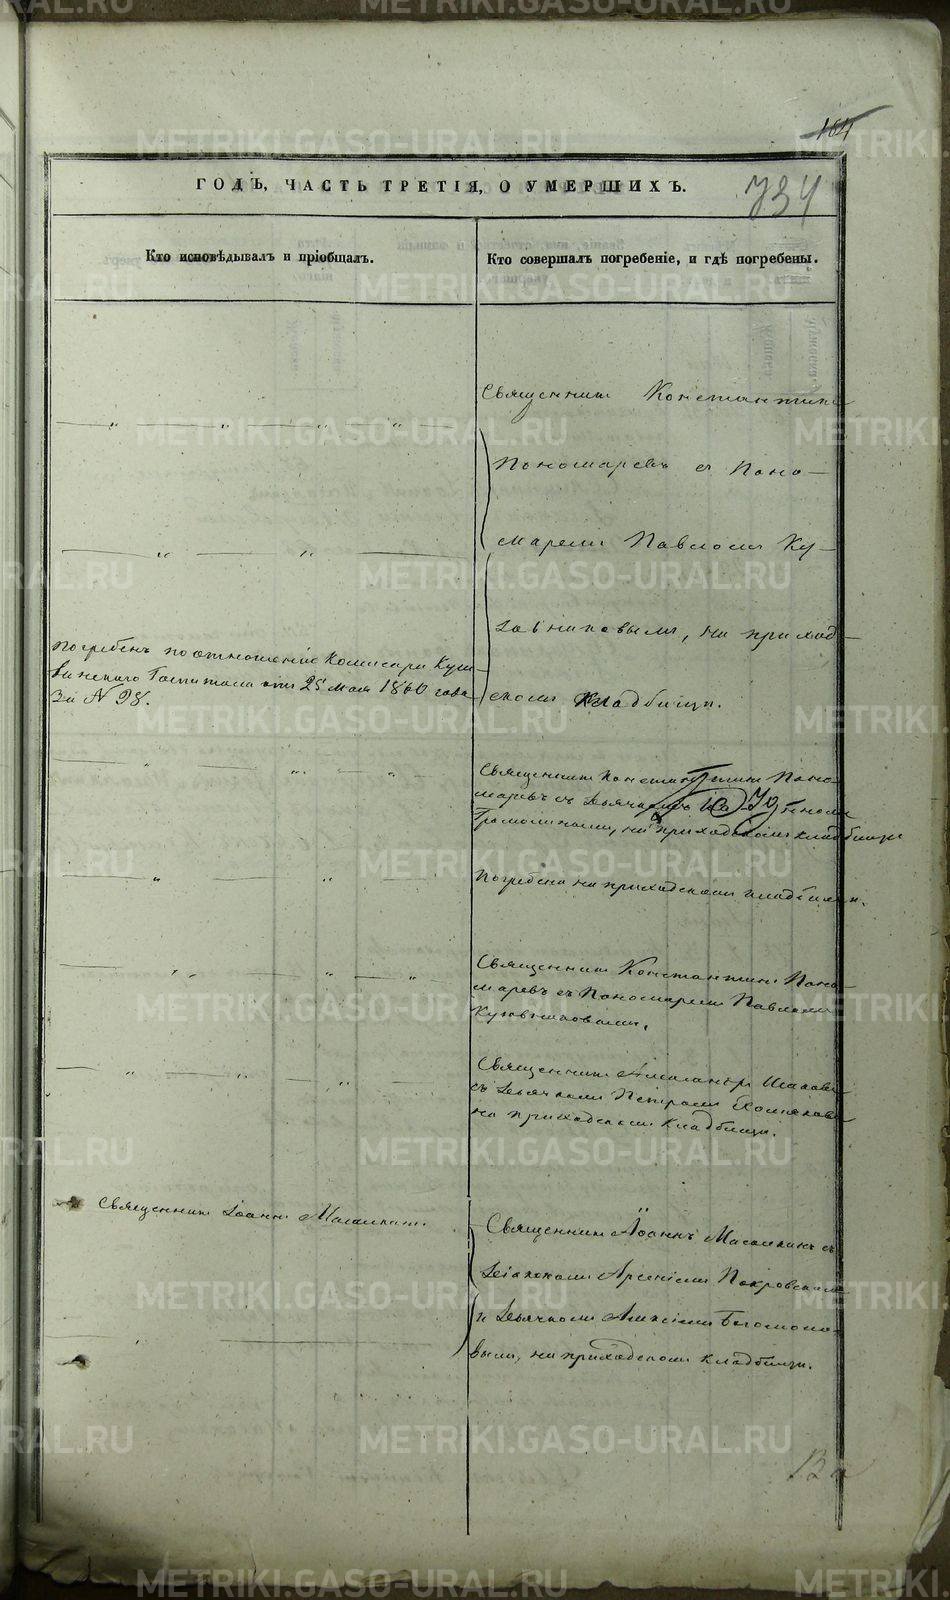 164
734
ГОДЪ, ЧАСТЬ ТРЕТІЯ, О УМЕРШИХЪ.
Кто исповѣдывалъ и пріобщалъ.
Кто совершалъ погребеніе, и гдѣ погребены.
Священникъ Константинъ
Пономаревъ съ Поно-
маремъ Павломъ Ку-
зовниковымъ, на приход-
скомъ кладбищѣ.
Погребенъ по отношенію Комисара Куш-
винскаго Госпиталя отъ 25 мая 1860 года
За № 98.
Священникъ Константинъ Поно-
маревъ съ Дьячкомъ
на приходскомъ кладбищѣ
Погребена на приходскомъ кладбищѣ.
Священникъ Константинъ Поно-
маревъ съ Пономаремъ Павломъ
Кузовниковымъ.
Священникъ Александръ
съ Дьячкомъ Петромъ
на приходскомъ кладбищѣ.
Священникъ Іоаннъ
Священникъ Іоаннъ съ
Діакономъ Арсеніемъ Покровскимъ
и Дьячкомъ Алексіемъ Богомоло-
вымъ, на приходскомъ кладбищѣ.
METRIKI.GASO-URAL.RU